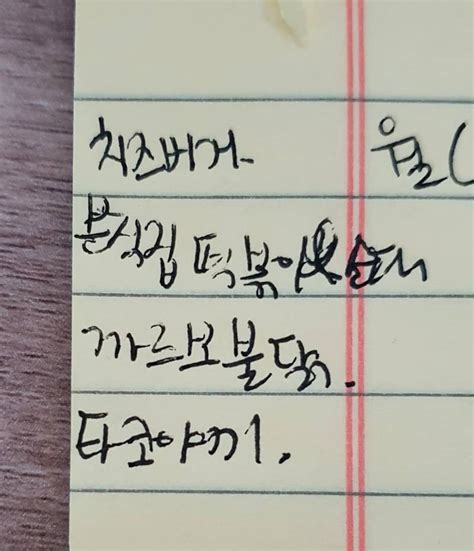 치즈버거 월(
분식집 떡볶이&순대
까르보불닭.
타코야끼.